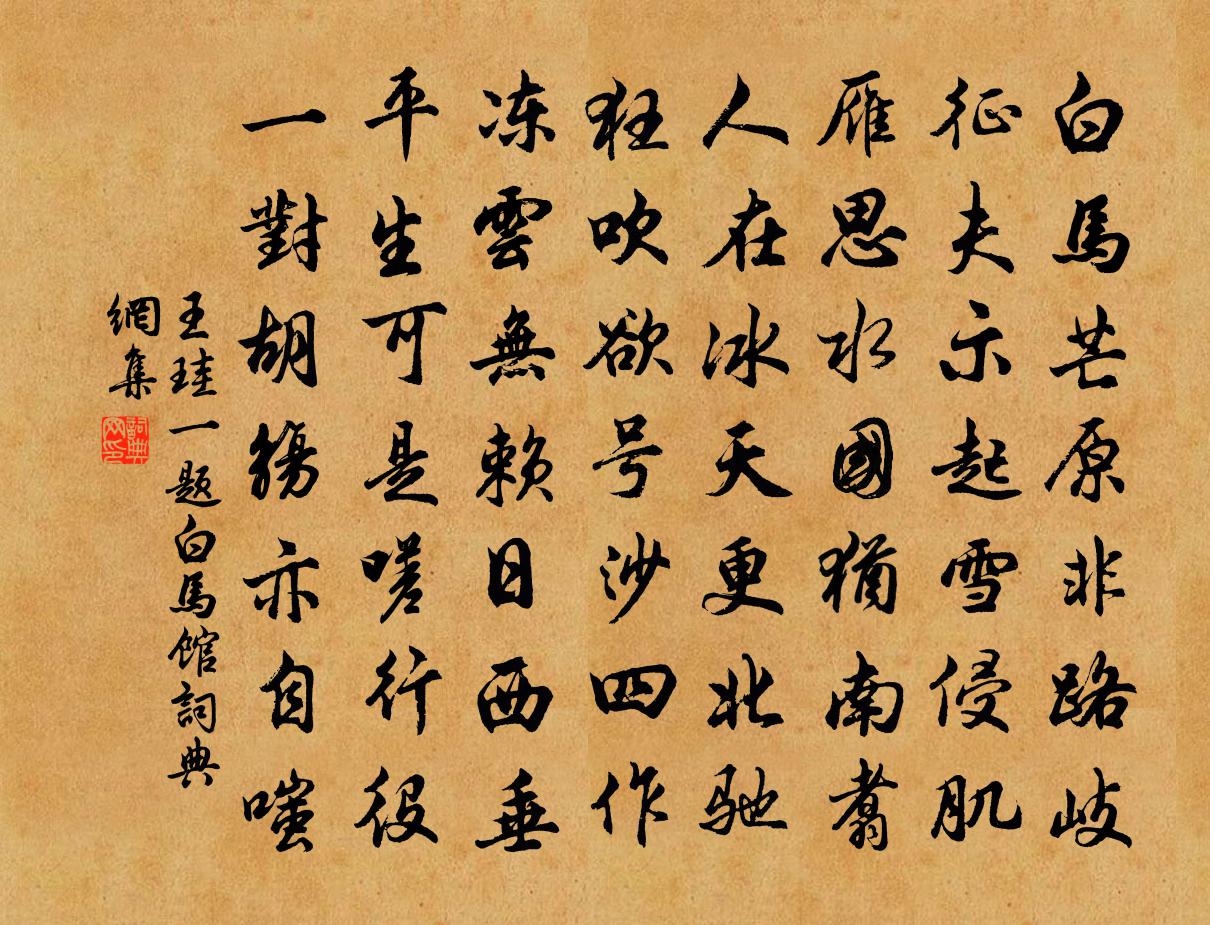 白馬芒原非路岐
征夫示起雪侵肌
雁思水國猶南翥
人在冰天更北馳
狂吹欲号沙四作
冻雲無赖日西垂
平生可是嗟行役
一對胡觴亦自嗤
王珪一题白馬館詞典
網集
詞典网印